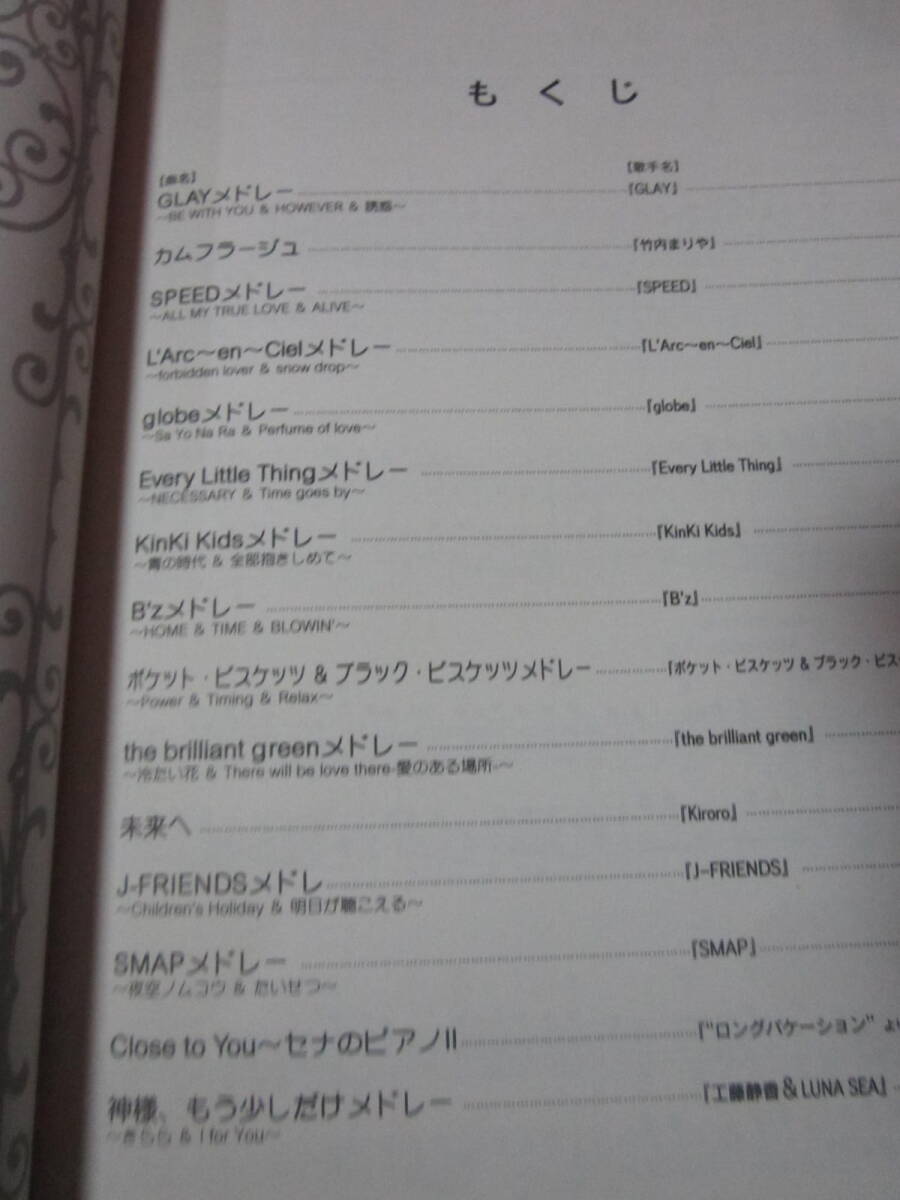 もくじ
【曲名】 【歌手名】
GLAYメドレー 『GLAY』
～BE WITH YOU & HOWEVER & 誘惑～
カムフラージュ 『竹内まりや』
SPEEDメドレー 『SPEED』
～ALL MY TRUE LOVE & ALIVE～
L'Arc～en～Cielメドレー 『L'Arc～en～Ciel』
～forbidden lover & snow drop～
globeメドレー 『globe』
～Sa Yo Na Ra & Perfume of love～
Every Little Thingメドレー 『Every Little Thing』
～NECESSARY & Time goes by～
KinKi Kidsメドレー 『KinKi Kids』
～青の時代 & 全部抱きしめて～
B'zメドレー 『B'z』
～HOME & TIME & BLOWIN'～
ポケット・ビスケッツ & ブラック・ビスケッツメドレー 『ポケット・ビスケッツ & ブラック・ビス
～Power & Timing & Relax～
the brilliant greenメドレー 『the brilliant green』
～冷たい花 & There will be love there-愛のある場所-～
未来へ 『Kiroro』
J-FRIENDSメドレ 『J-FRIENDS』
～Children's Holiday & 明日が聴こえる～
SMAPメドレー 『SMAP』
～夜空ノムコウ & たいせつ～
Close to You～セナのピアノII 『"ロングバケーション" よ
神様、もう少しだけメドレー 『工藤静香 & LUNA SEA』
～きらら & I for You～